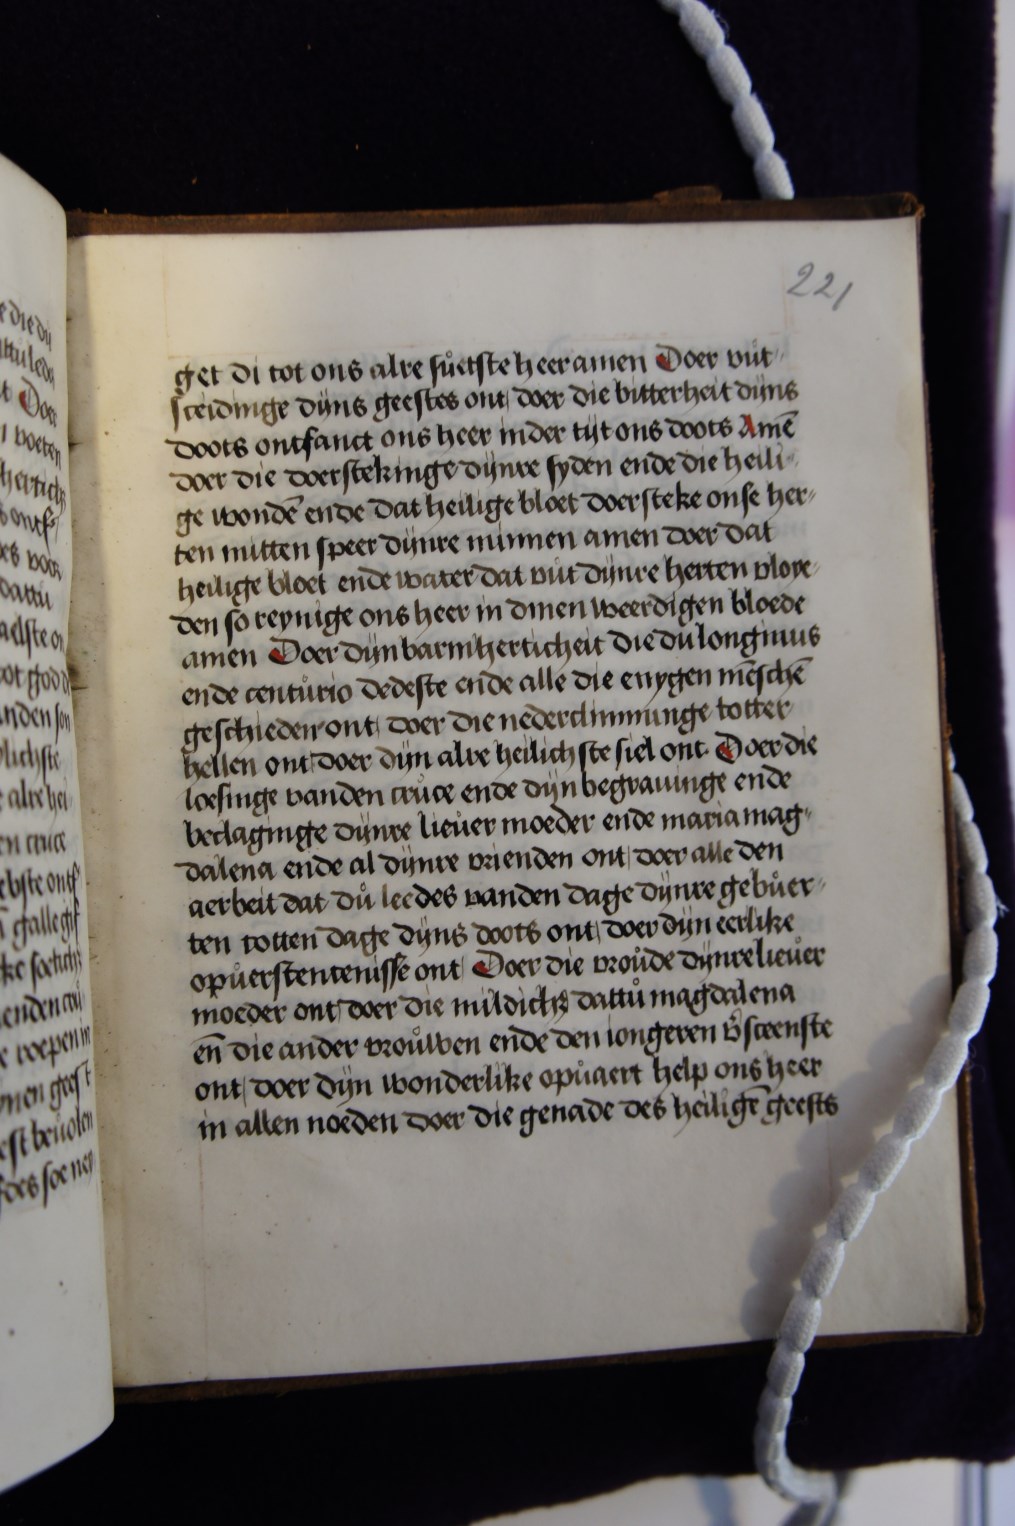 221
get di tot ons alre suetste heer amen Doer uut
sceidinge dijns geestes ont doer die bitterheit dijns
doots ontfanct ons heer inder tijt ons doots Amē
doer die doerstekinge dijnre syden ende die heili
ge wondē ende dat heilige bloet doersteke onse her
ten mitten speer dijnre minnen amen doer dat
heilige bloet ende water dat uut dijnre herten vloye
den so reynige ons heer in dinen weerdigen bloede
amen Doer dijn barmherticheit die du longinius
ende centurio dedeste ende alle die enygen mēschē
geschieden ont doer die nederclimminge totter
hellen ont doer dijn alre heilichste siel ont Doer die
loesinge vanden cruce ende dijn begravinge ende
beclaginge dijnre liever moeder ende maria mag
dalena ende al dijnre vrienden ont doer alle den
aerbeit dat du leedes vanden dage dijnre gebuer
ten totten dage dijns doots ont doer dijn eerlike
opuerstentenisse ont Doer die vroude dijnre liever
moeder ont doer die mildich dattu magdalena
eñ die ander vrouwen ende den iongeren v̄sceenste
ont doer dijn wonderlike opvaert help ons heer
in allen noeden doer die genade des heiligē geests